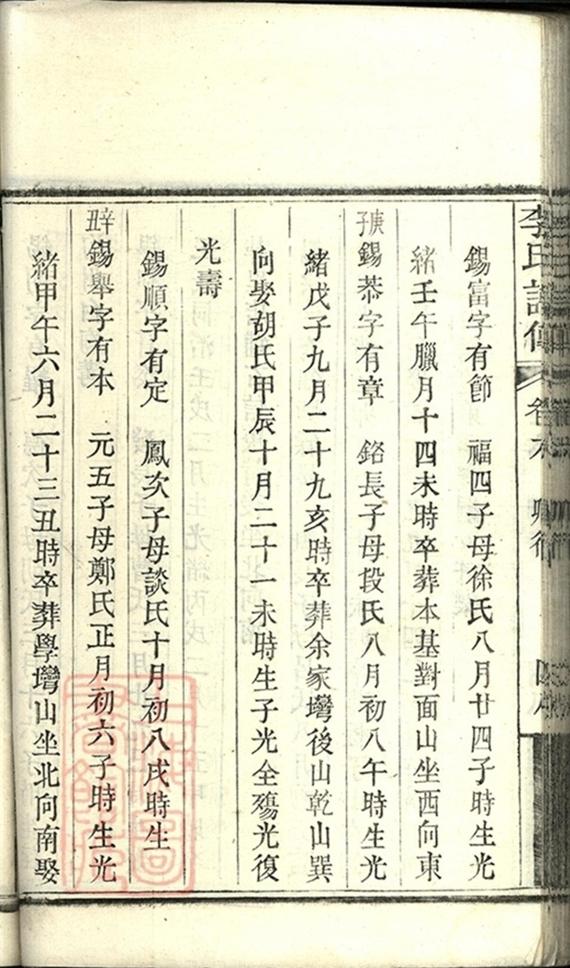 李氏譜傳
卷
錫富字有節　福四子母徐氏八月廿四子時生光
緒壬午臘月十四未時卒葬本基對面山坐西向東
庚子錫恭字有章　銘長子母段氏八月初八午時生光
緒戊子九月二十九亥時卒葬余家塆後山乾山巽
向娶胡氏甲辰十月二十一未時生子光全殤光復
光壽
錫順字有定　鳳次子母談氏十月初八戌時生
辛丑錫舉字有本　元五子母鄭氏正月初六子時生光
緒甲午六月二十三丑時卒葬學塆山坐北向南娶